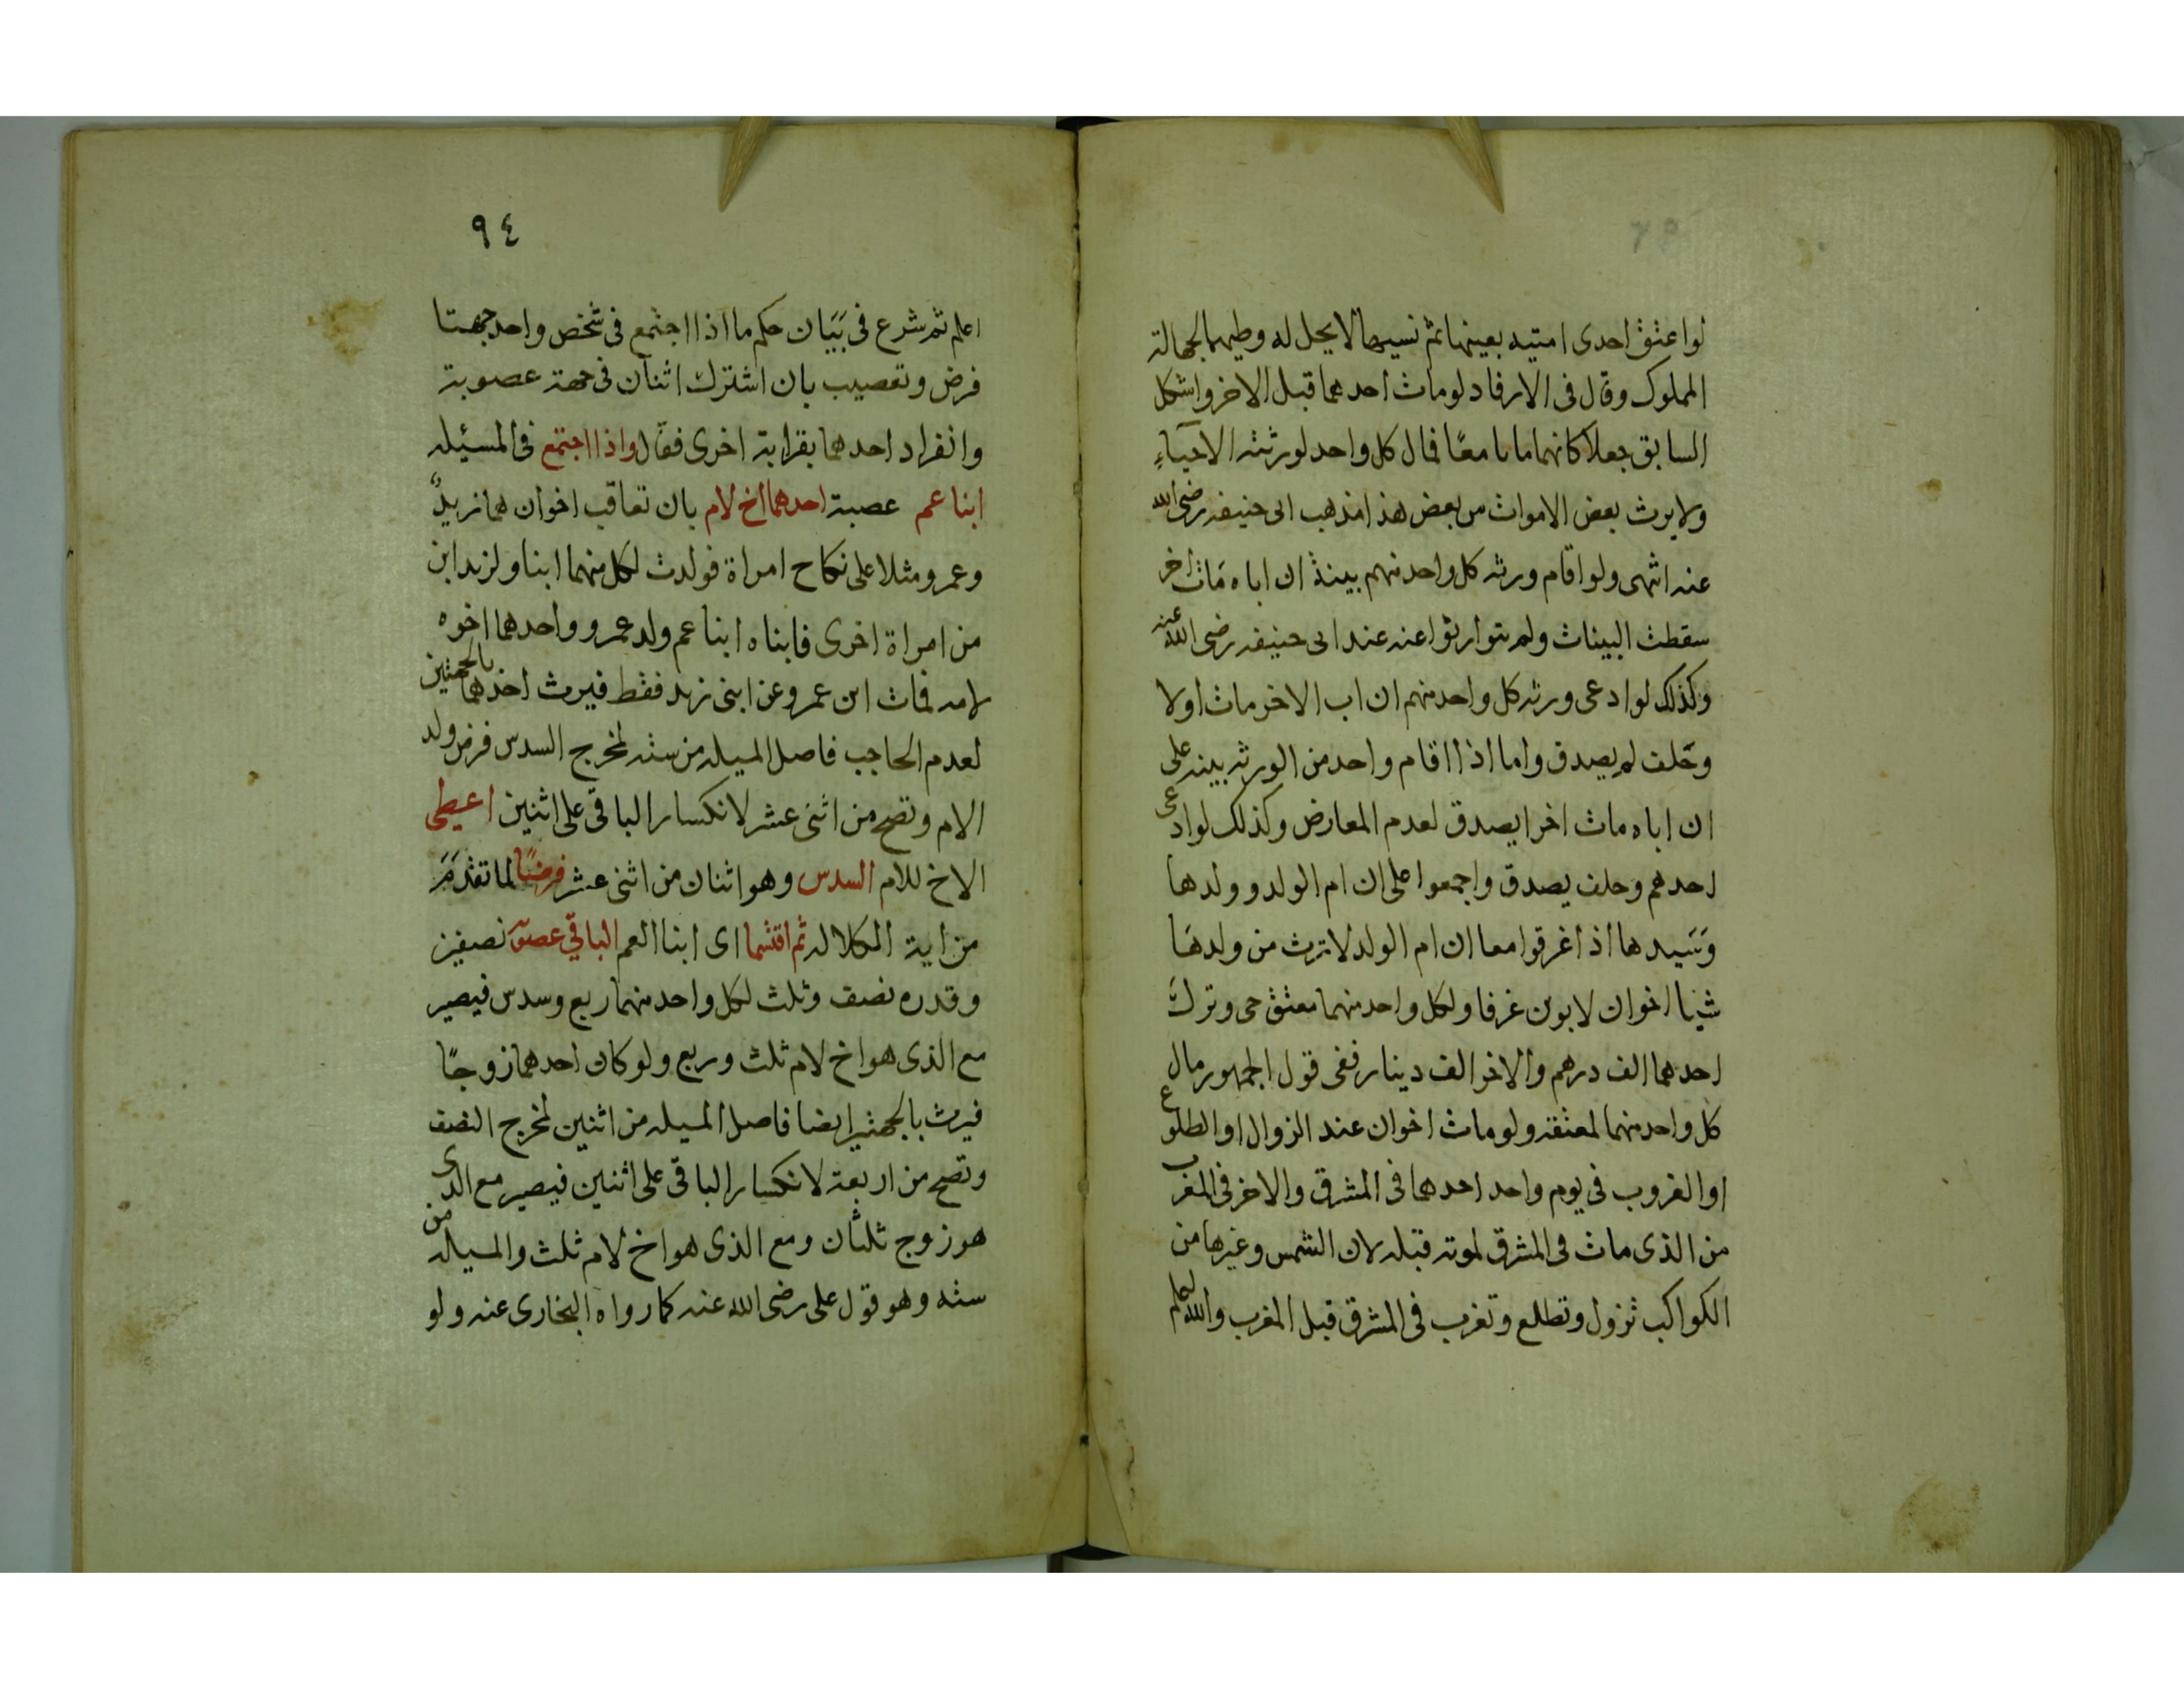 لو اعتق احدى امتيه بعينها ثم نسيها لا يحل له وطيهما لجهالة
المملوك وقال فى الارفاد لومات احدهما قبل الاخر واشكل
السابق جعلا كانهما ماتا معًا فمال كل واحد لورثته الاحياءِ
ولا يرث بعض الاموات من بعض هذا مذهب ابى حنيفه رضى الله
عنه انتهى ولو اقام ورثه كل واحد منهم بينة ان اباه مات اخر
سقطت البينات ولم يتوارثوا عنه عند ابى حنيفه رضى الله عنه
وكذلك لو ادعى ورثه كل واحد منهم ان اب الاخر مات اولا
وحلف لم يصدق واما اذا اقام واحد من الورثه بينه على
ان اباه مات اخرا يصدق لعدم المعارض وكذلك لو ادعى
احدهم وحلف يصدق واجمعوا على ان ام الولد وولدها
وسيدها اذا غرقوا معا ان ام الولد لا ترث من ولدها
شيئا اخوان لابوين غرقا ولكل واحد منهما معتق حى وترك
احدهما الف درهم والاخر الف دينار ففى قول الجمهور مال
كل واحد منهما لمعتقه ولو مات اخوان عند الزوال او الطلوع
او الغروب فى يوم واحد احدهما فى المشرق والاخر فى المغرب
من الذى مات فى المشرق لموته قبله لان الشمس وغيرها من
الكواكب تزول وتطلع وتغرب فى المشرق قبل المغرب والله اعلم
٩٤
اعلم ثم شرع فى بَيَان حكم ما اذا اجتمع فى شخص واحد جهتا
فرض وتعصيب بان اشترك اثنان فى جهة عصوبة
وانفراد احدهما بقرابة اخرى فقال واذا اجتمع فى المسئيله
ابنا عم عصبة احدهما اخ لام بان تعاقب اخوان هما زيدٌ
وعمرو مثلا على نكاح امراة فولدت لكل منهما ابنا ولزيد ابن
من امراة اخرى فابناه ابنا عم ولد عمرو واحدهما اخوه
لامه فمات ابن عمرو عن ابنى زيد فقط فيرث احدهما بالجهتين
لعدم الحاجب فاصل المسيله من سته لمخرج السدس فرض ولد
الام وتصح من اثنى عشر لانكسار الباقى على اثنين اعيطى
الاخ للام السدس وهو اثنان من اثنى عشر فرضًا لما تقدَّمَ
من اية الكلاله ثم اقتسما اى ابنا العم الباقي عصوبة نصفين
وقدره نصف وثلث لكل واحد منهما ربع وسدس فيصير
مع الذى هو اخ لام ثلث وربع ولو كان احدهما زوجًا
فيرث بالجهتين ايضا فاصل المسيله من اثنين لمخرج النصف
وتصح من اربعة لانكسار الباقى على اثنين فيصير مع الذى
هو زوج ثلثان ومع الذى هو اخ لام ثلث والمسيله من
سته وهو قول على رضى الله عنه كما رواه البخارى عنه ولو